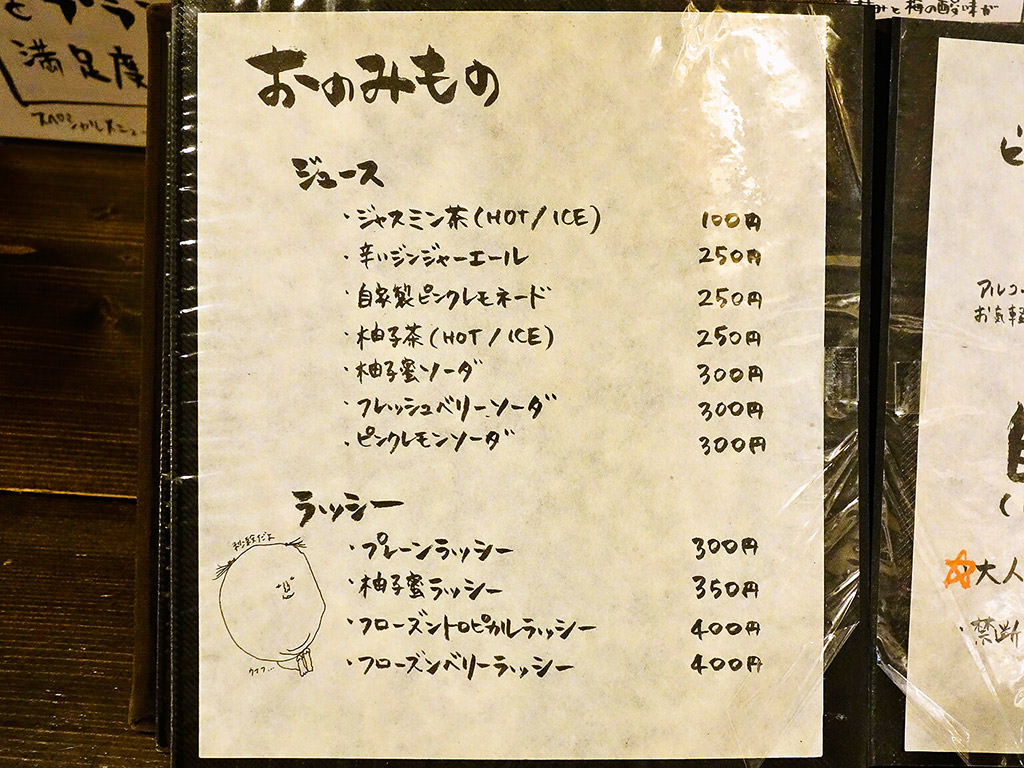 満足度
スペシャルメニュー
おのみもの
ジュース
・ジャスミン茶(HOT/ICE) 100円
・辛いジンジャーエール 250円
・自家製ピンクレモネード 250円
・柚子茶(HOT/ICE) 250円
・柚子蜜ソーダ 300円
・フレッシュベリーソーダ 300円
・ピンクレモンソーダ 300円
ラッシー
・プレーンラッシー 300円
・柚子蜜ラッシー 350円
・フローズントロピカルラッシー 400円
・フローズンベリーラッシー 400円
と梅の酸味が
アルコー
お気軽
大人
・禁断